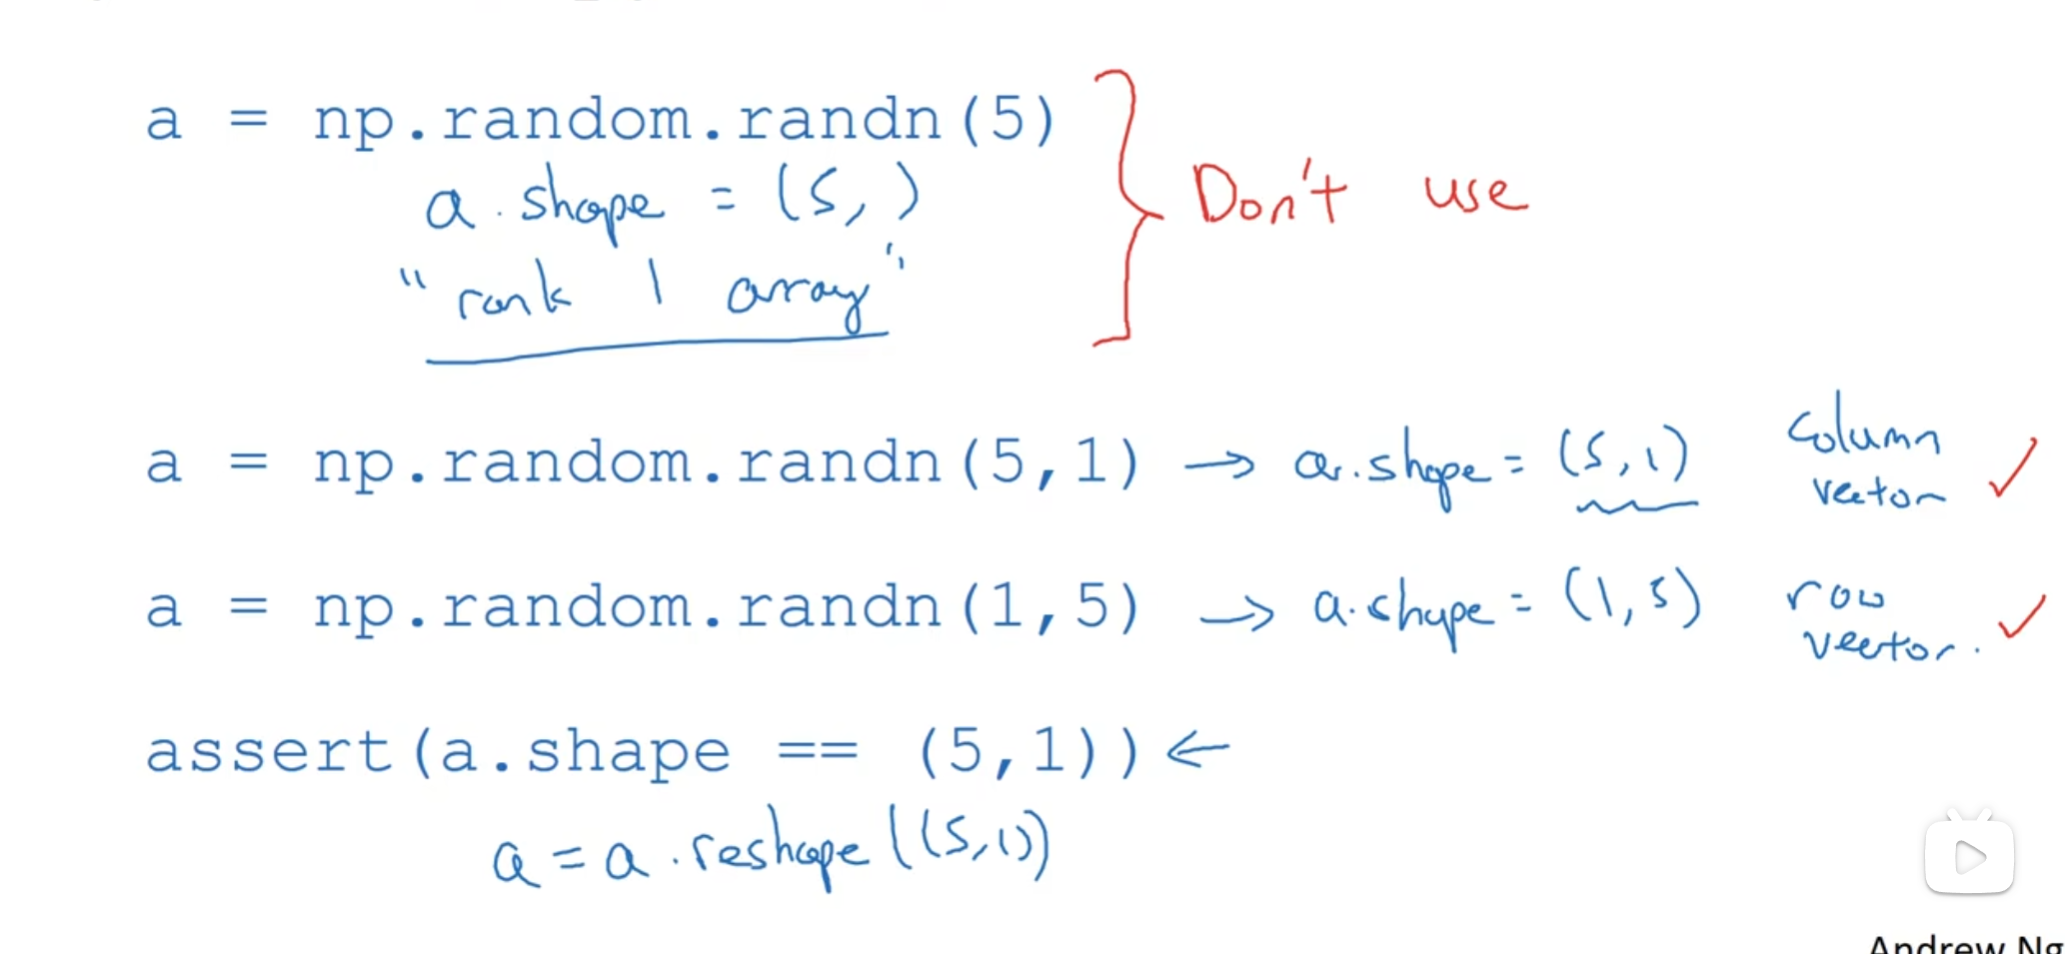 a = np.random.randn(5)
a.shape = (5,)
"rank 1 array"
Don't use
a = np.random.randn(5,1) → a.shape = (5,1) column vector ✓
a = np.random.randn(1,5) → a.shape = (1,5) row vector. ✓
assert(a.shape == (5,1)) ←
a = a.reshape((5,1))
Andrew Ng